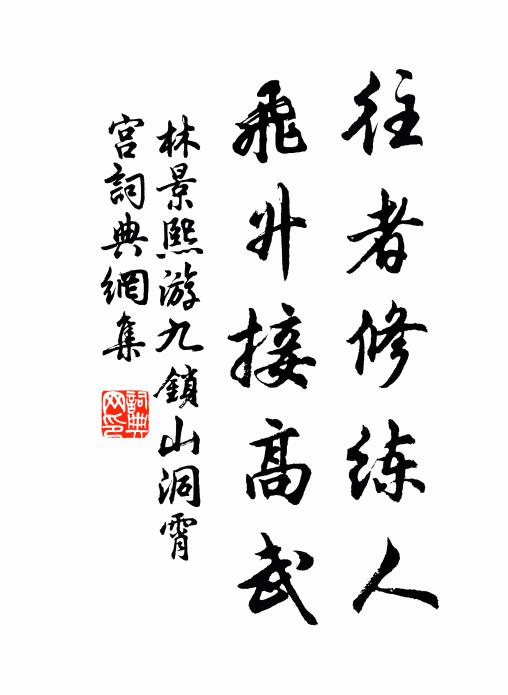 往者修练人
飛升接高武
林景熙游九鎖山洞霄
宮詞典網集
詞典网印